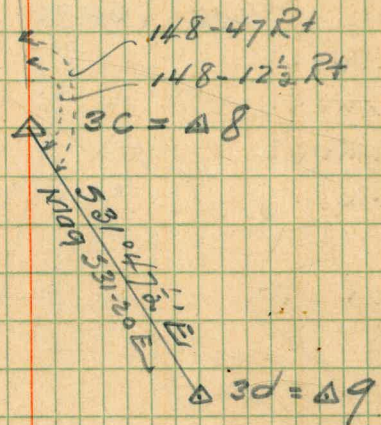 148-47 Rt
148-12½ Rt
3C = △ 8
S31°47½'E
Mag S31-20E
3d = △ 9